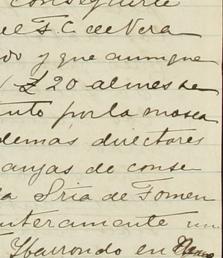 conseguirle
el F.C. de Vera
do y que aunque
£ 20 al mes se
nto por la mesa
demas directores
anjas de conse
a Sria de Fomen
nteramente un
Ybarrondo en